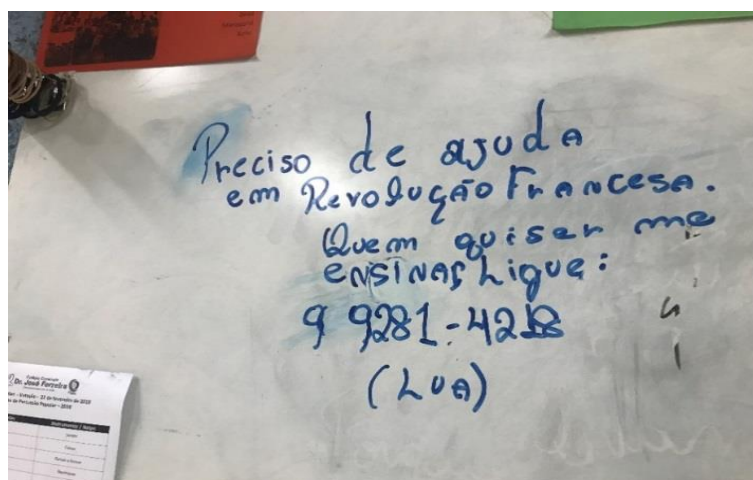 Preciso de ajuda
em Revolução Francesa.
Quem quiser me
ensinar Ligue:
9 9281-4218
(LUA)
Dr. José Ferreira